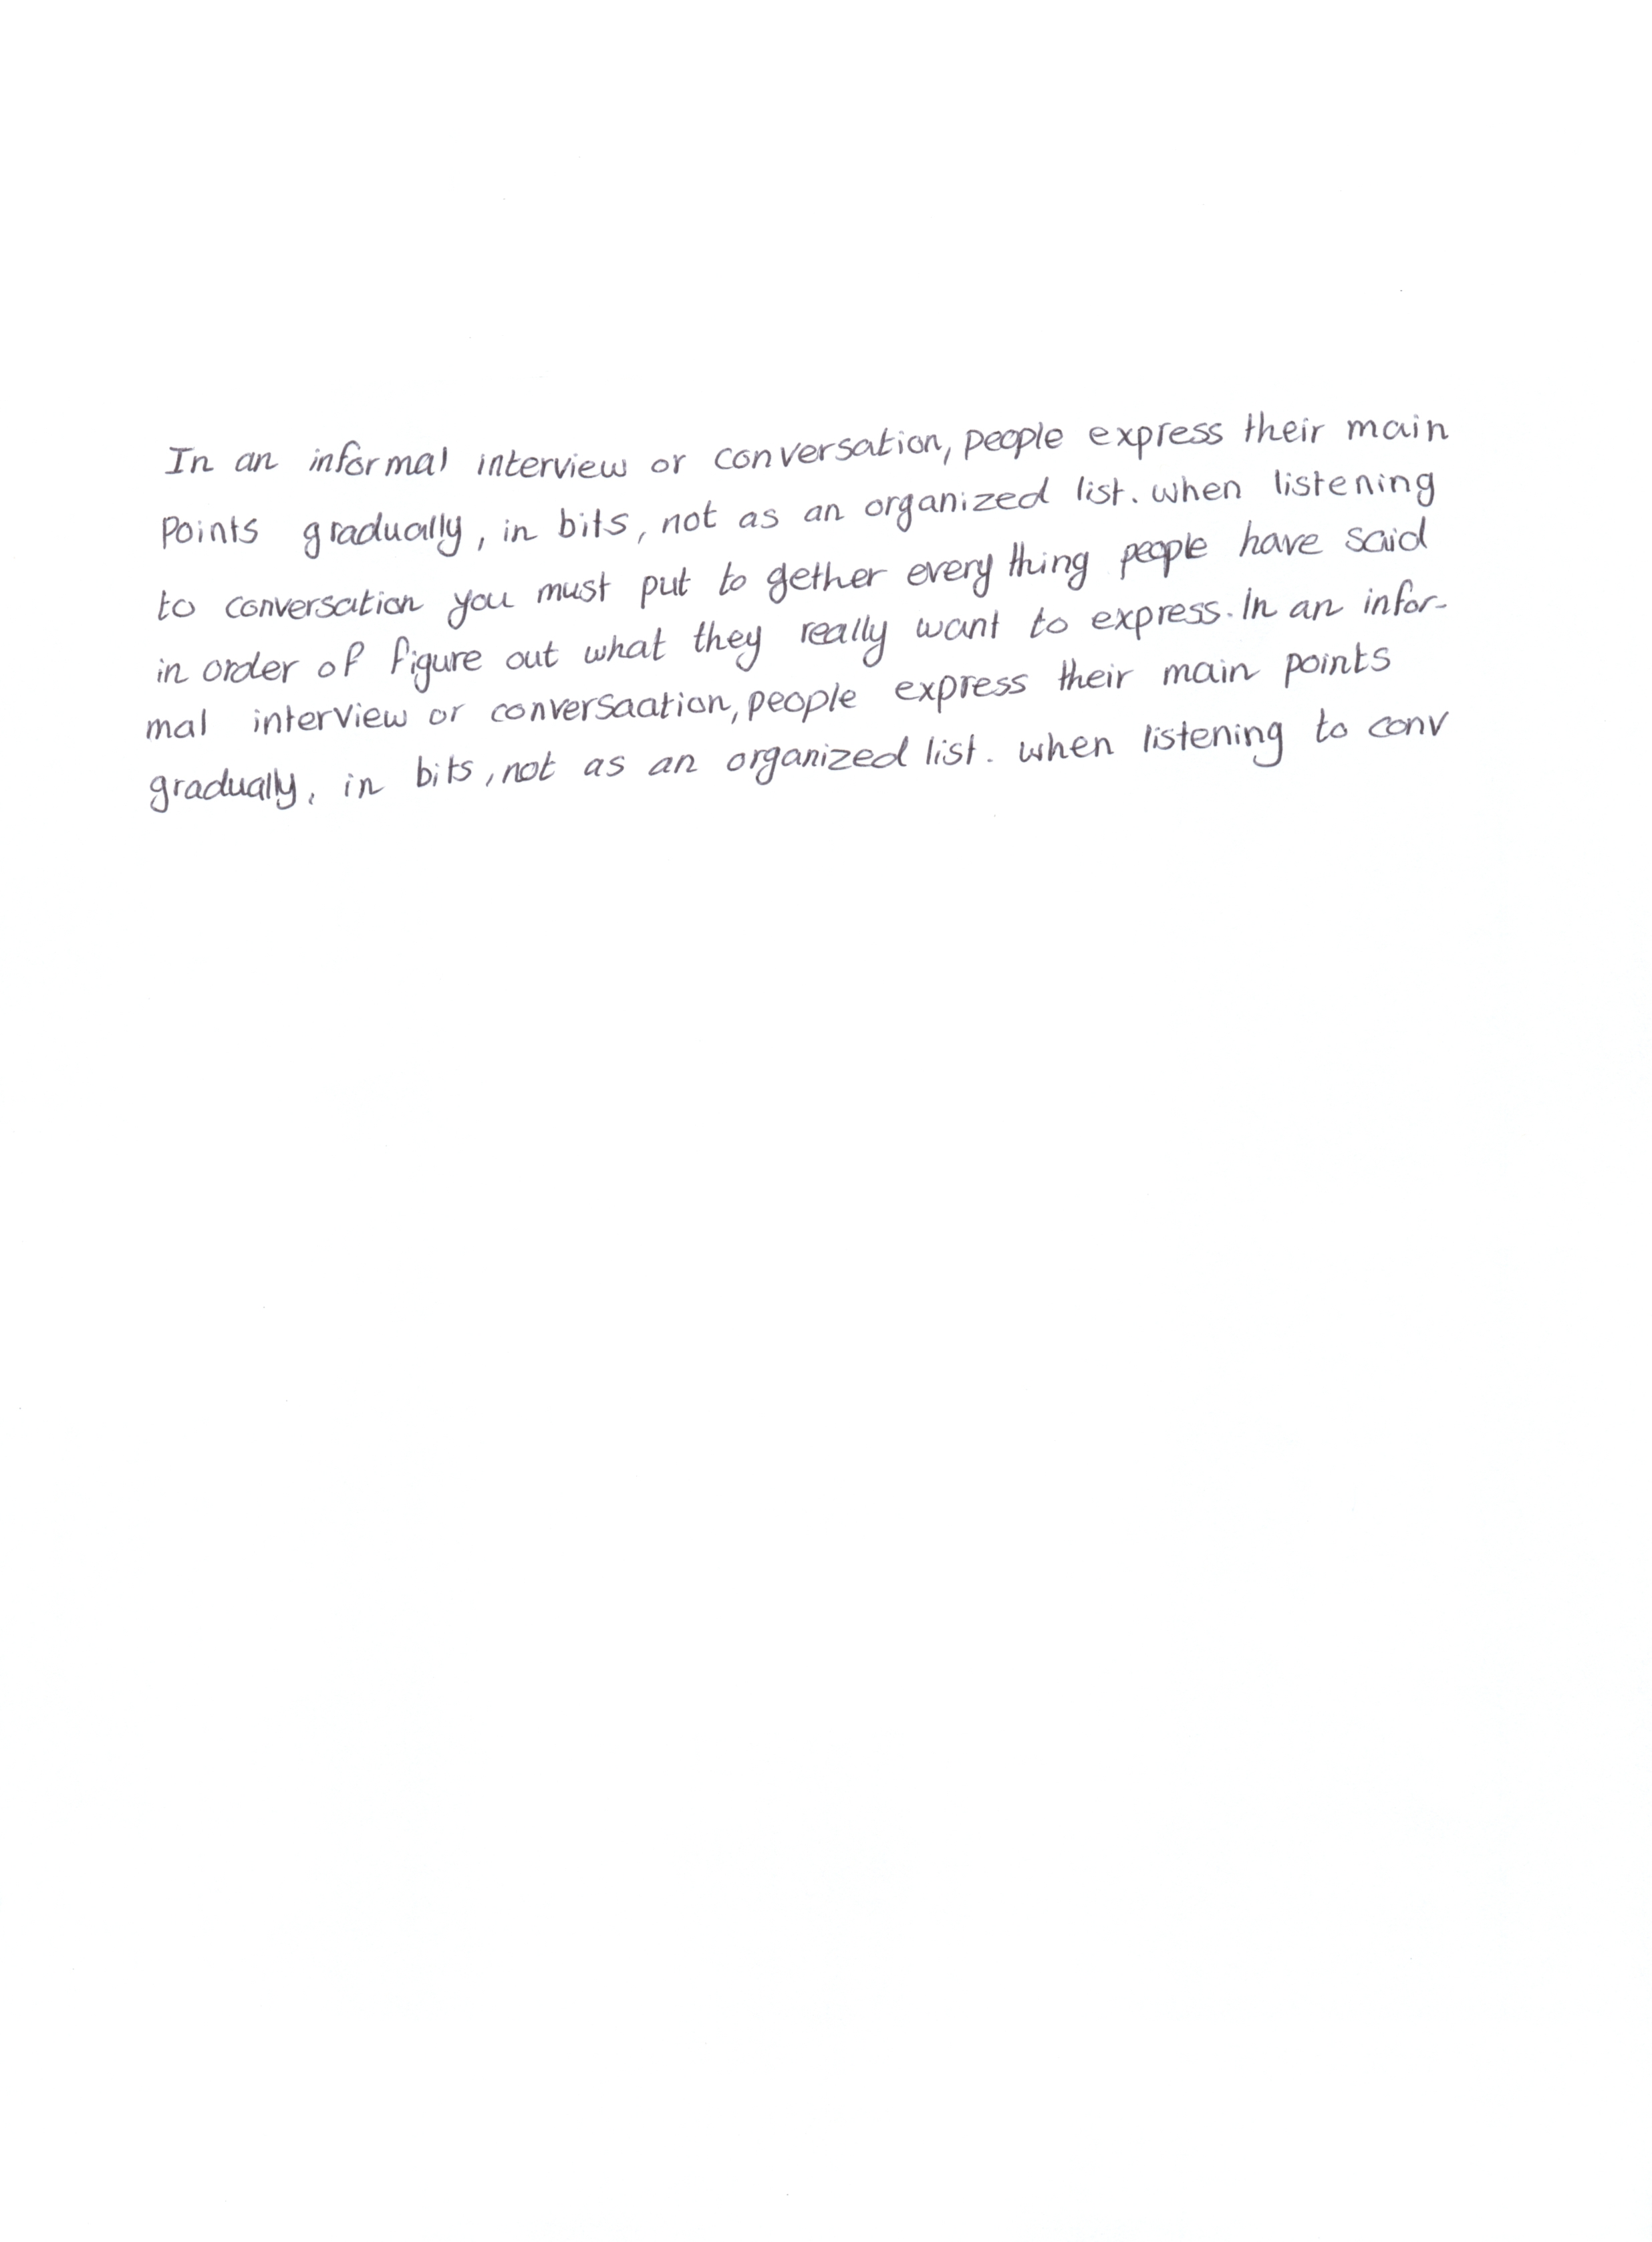 In an informal interview or conversation, people express their main
Points gradually, in bits, not as an organized list. when listening
to conversation you must put to gether every thing people have said
in order of figure out what they really want to express. In an infor-
mal interview or conversaation, people express their main points
gradually, in bits, not as an organized list. when listening to conv